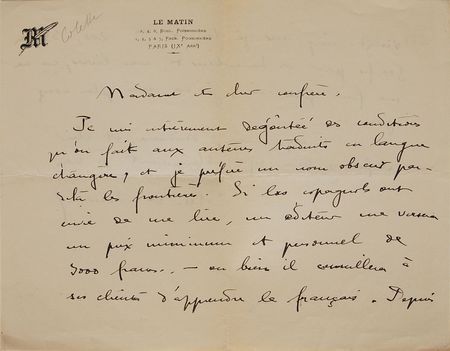 M
Colette
LE MATIN
2, 4, 6, Boul. Poissonnière
1, 3, 5 & 7, Faub. Poissonnière
PARIS (IXe Arrt)
Madame et cher confrère,
Je suis entièrement dégoûtée des conditions
qu'on fait aux auteurs traduits en langue
étrangère, et je préfère un nom obscur par-
delà les frontières. Si les espagnols ont
envie de me lire, un éditeur me versera
un prix minimum et personnel de
3000 francs. — ou bien il conseillera à
ses clients d'apprendre le français. Depuis